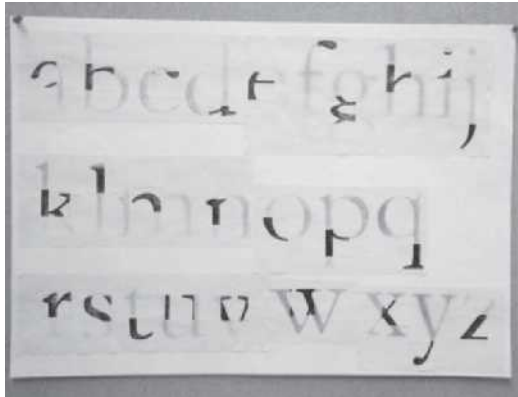 abcdefghij
klmnopq
rstuvwxyz